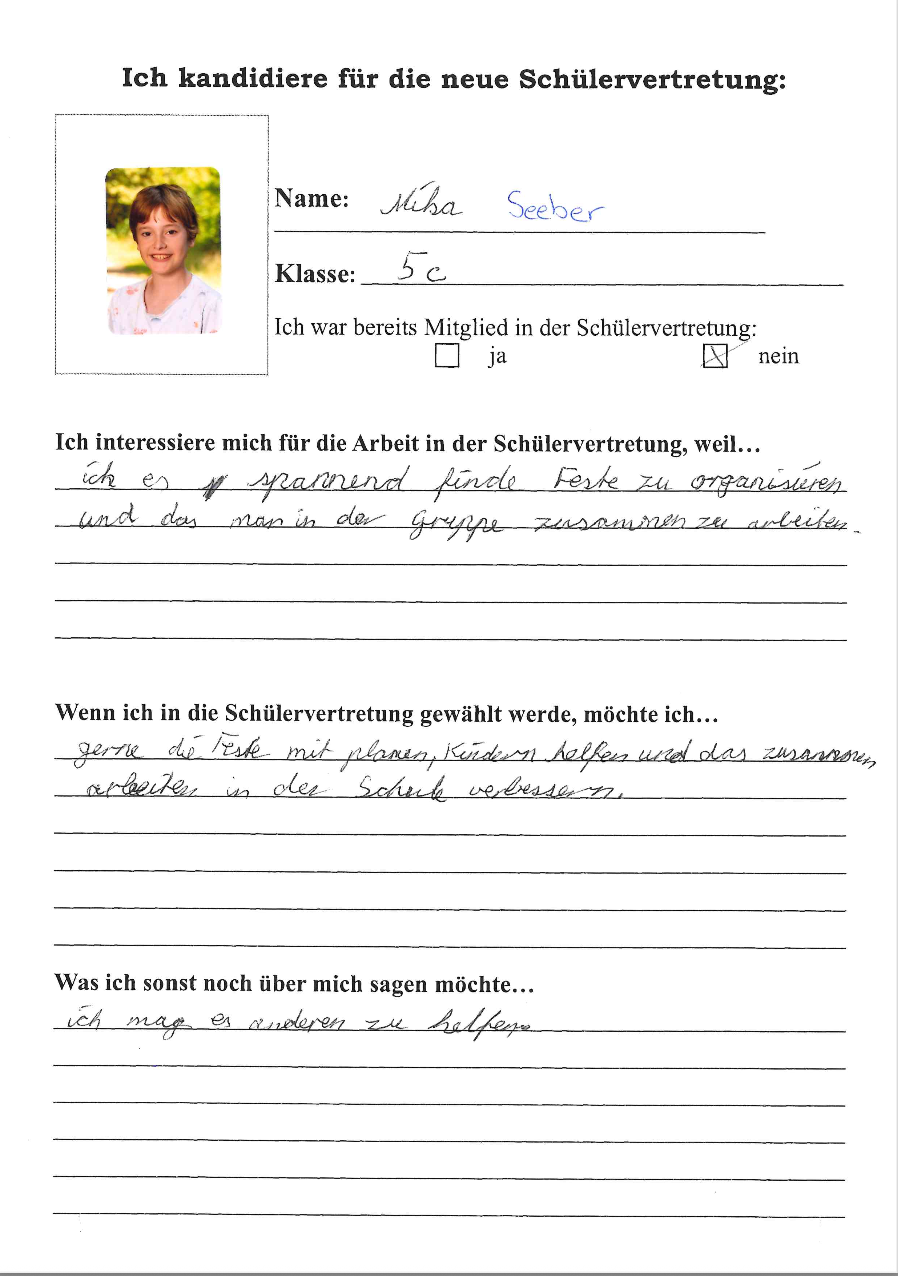 Ich kandidiere für die neue Schülervertretung:
Name: Mika Seeber
Klasse: 5c
Ich war bereits Mitglied in der Schülervertretung:
ja nein
Ich interessiere mich für die Arbeit in der Schülervertretung, weil…
ich es spannend finde Feste zu organisieren
und das man in der Gruppe zusammen zu arbeiten.
Wenn ich in die Schülervertretung gewählt werde, möchte ich…
gerne die Feste mit planen, Kindern helfen und das zusammen
arbeiten in der Schule verbessern.
Was ich sonst noch über mich sagen möchte…
ich mag es anderen zu helfen.